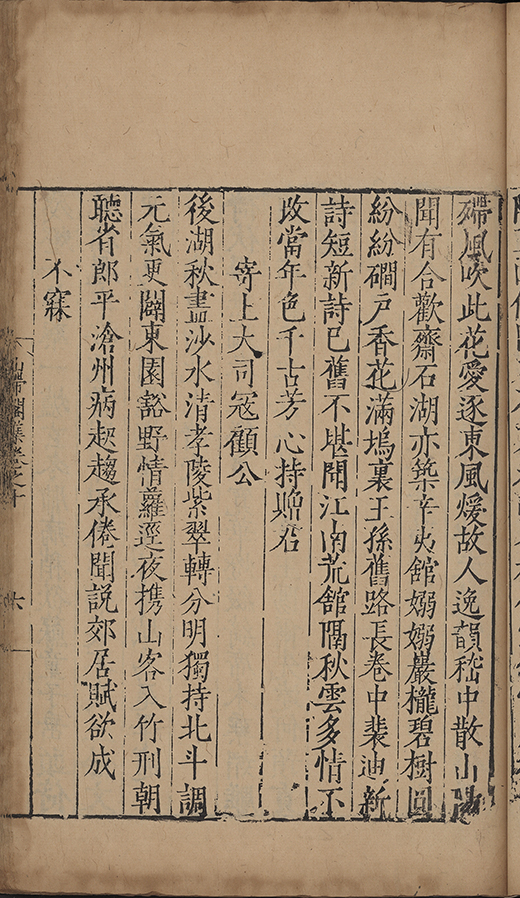 歸風吹此花愛逐東風煖故人逸韻嵇中散山陽
聞有合歡齋石湖亦築辛夷館嫋嫋巖櫳碧樹圓
紛紛磵戶香花滿塢裏王孫舊路長卷中裴迪新
詩短新詩已舊不堪聞江南荒館隔秋雲多情不
改當年色千古芳心持贈君
寄上大司寇顧公
後湖秋盡沙水清孝陵紫翠轉分明獨持北斗調
元氣更闢東園豁野情蘿逕夜携山客入竹刑朝
聽省郎平滄州病起趨承倦聞説郊居賦欲成
不寐